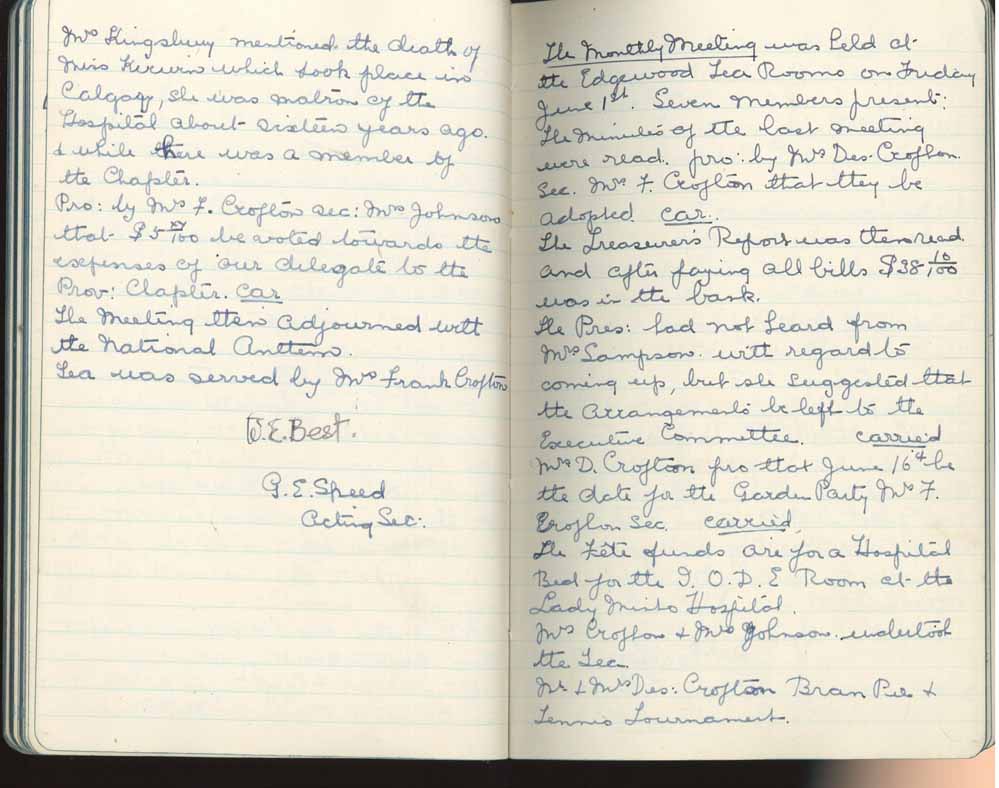 Mrs Kingsbury mentioned the death of
Miss Kirwin which took place in
Calgary, she was matron of the
Hospital about sixteen years ago.
& while there was a member of
the Chapter.
Pro: by Mrs F. Crofton sec: Mrs Johnson
that $5 00/100 be voted towards the
expenses of our delegate to the
Prov: Chapter. car
The Meeting then adjourned with
the National Anthem.
Tea was served by Mrs Frank Crofton
V.E. Best.
G.E. Speed
Acting Sec:.
The Monthly Meeting was held at
the Edgewood Tea Rooms on Friday
June 1st. Seven members present:
The minutes of the last meeting
were read. pro: by Mrs Des: Crofton.
Sec. Mrs F. Crofton that they be
adopted car.
The Treasurer's Report was then read
and after paying all bills $38 10/100
was in the bank.
The Pres: had not heard from
Mrs Sampson. with regard to
coming up, but she suggested that
the arrangements be left to the
Executive Committee. carried
Mrs D. Crofton pro that June 16th be
the date for the Garden Party Mrs F.
Crofton Sec. carried.
The Fête funds are for a Hospital
Bed for the I.O.D.E Room at the
Lady Minto Hospital.
Mrs Crofton & Mrs Johnson. undertook
the Tea.
Mr & Mrs Des: Crofton Bran Pie &
Tennis Tournament.